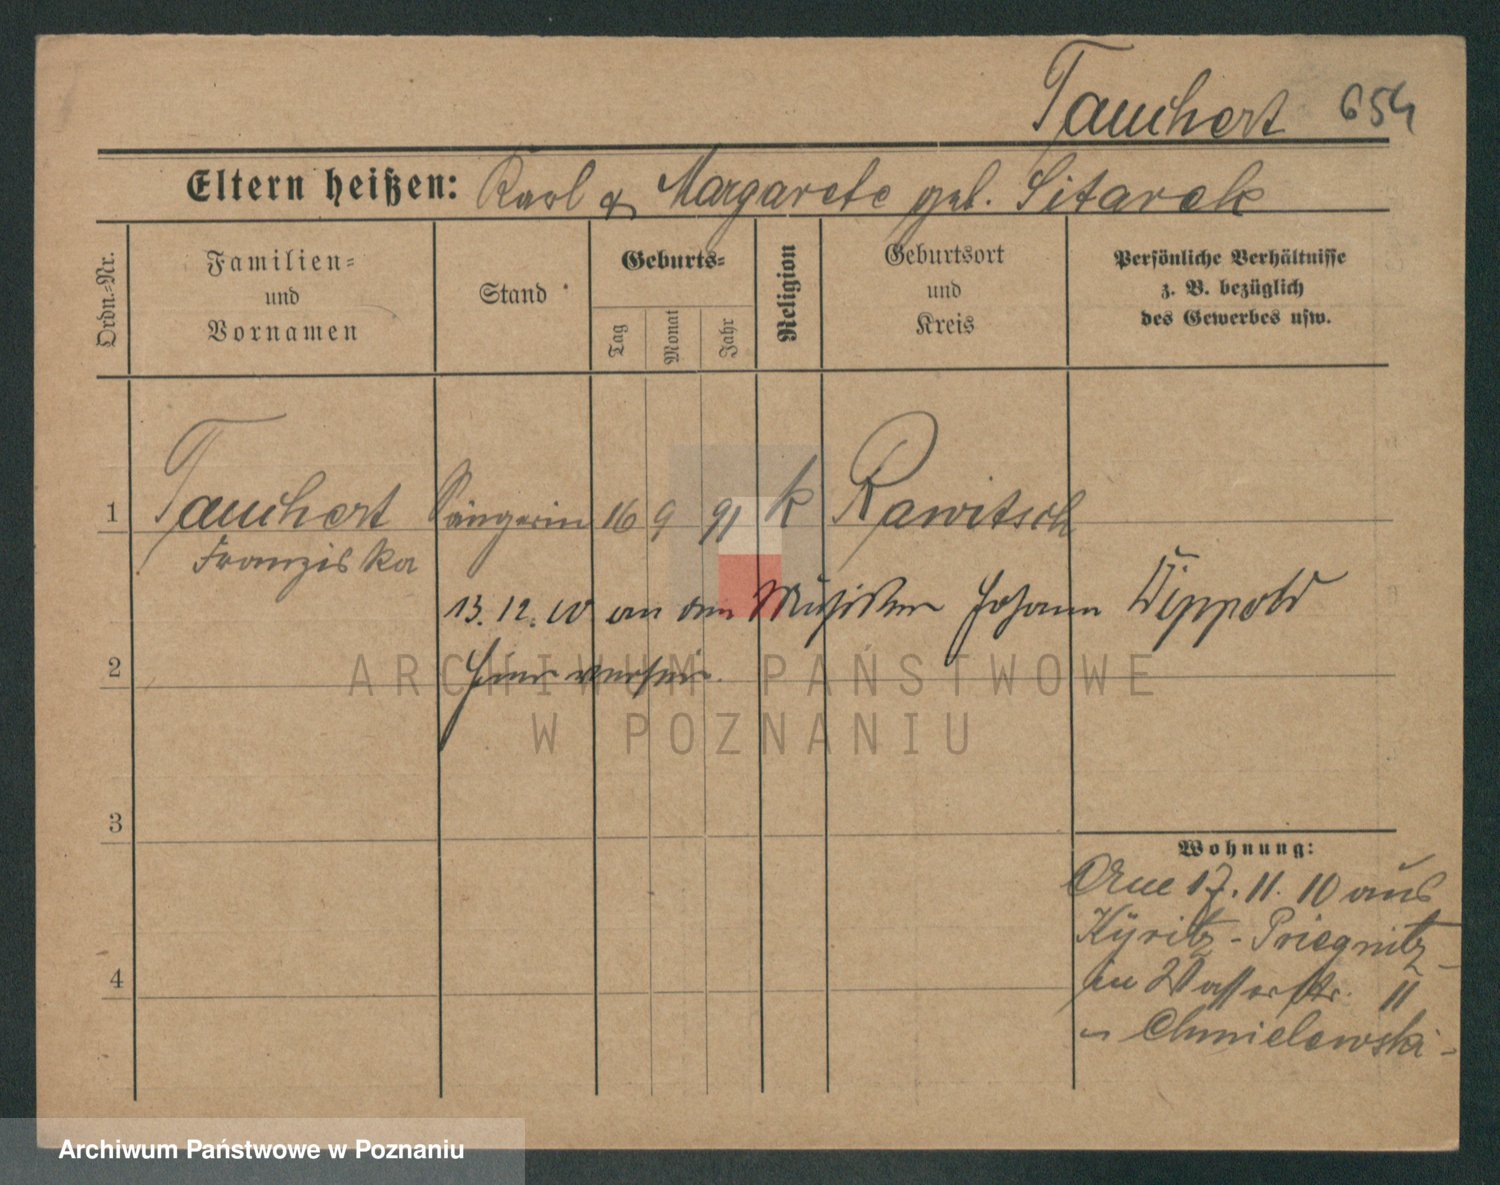 Tauchert 654
Eltern heißen: Karl & Margarete geb. Sitarek
Ordn.-Nr.
Familien- und Vornamen
Stand
Geburts-
Tag
Monat
Jahr
Religion
Geburtsort und Kreis
Persönliche Verhältnisse
z. B. bezüglich
des Gewerbes usw.
1 Tauchert Sängerin 16 9 91 k Rawitsch
Franziska
13. 12. 10 an den Musiker Johann Wippold
2 hier verheir.
3
4
Wohnung:
17. 11. 10 aus
Kyritz-Priegnitz
in Wasserstr. 11
Chmielewski
ARCHIWUM PAŃSTWOWE
W POZNANIU
Archiwum Państwowe w Poznaniu